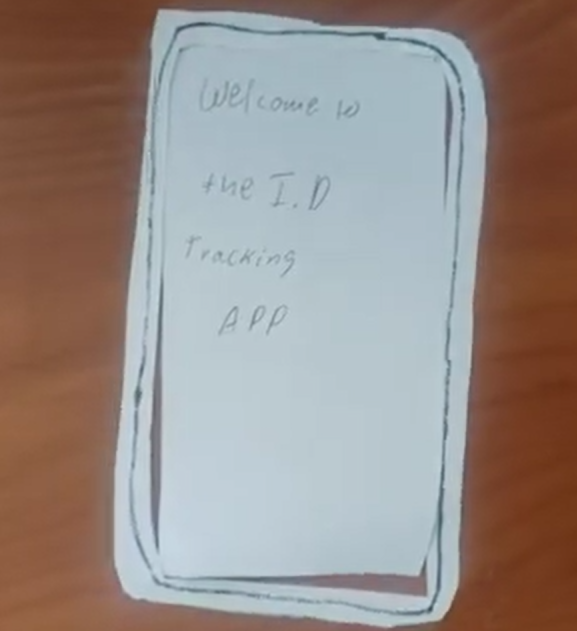 Welcome to
the I.D
Tracking
APP